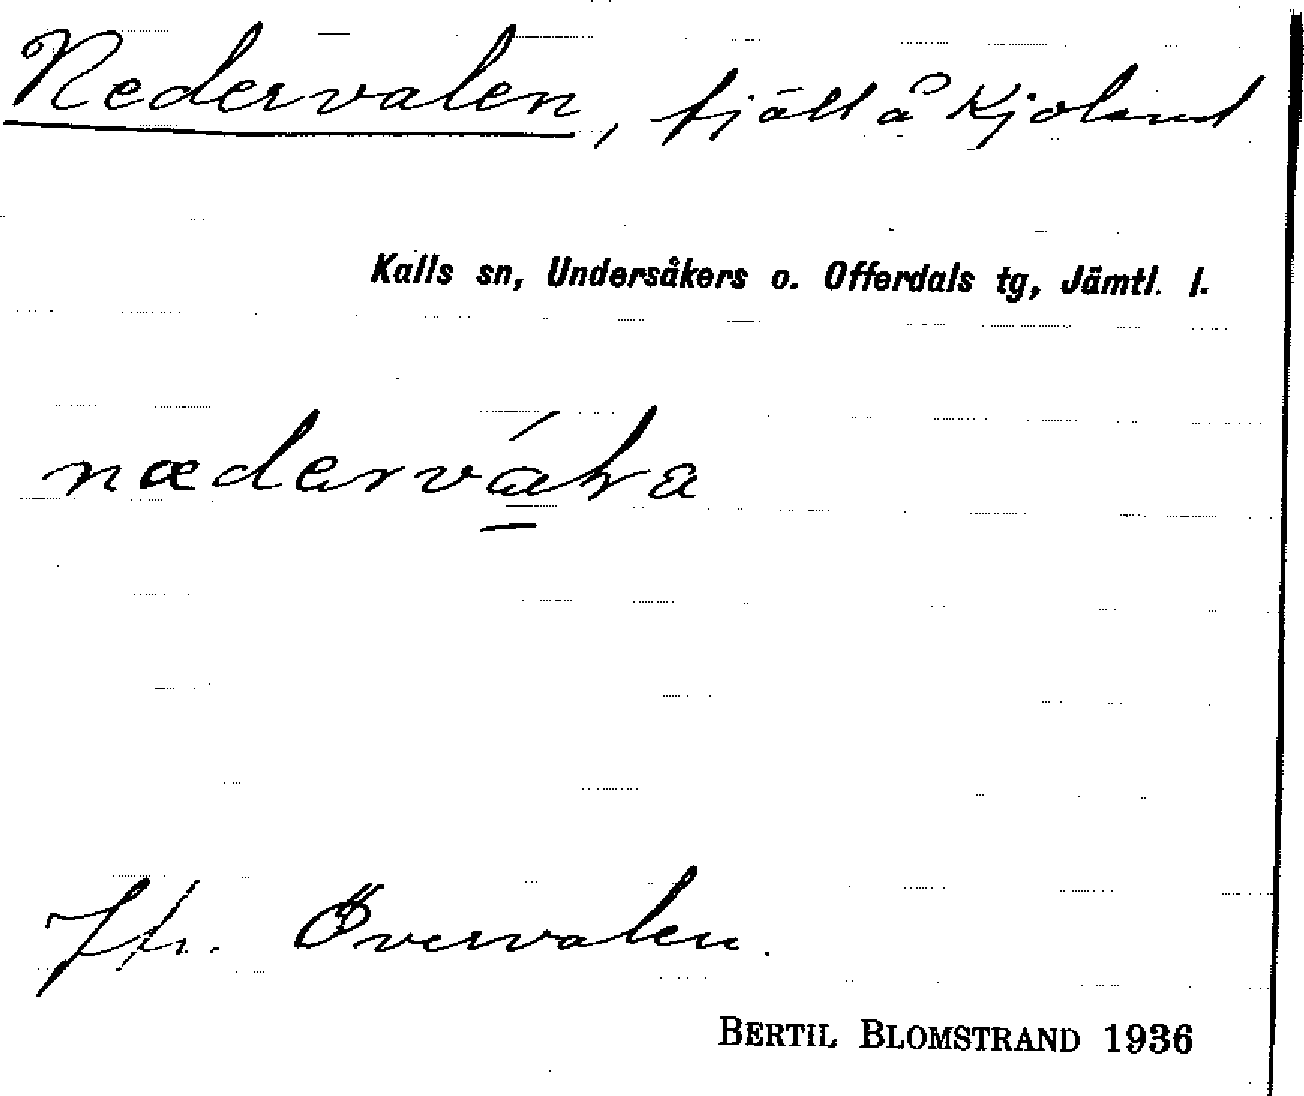 Nedervalen, fjäll å Kjoland
Kalls sn, Undersåkers o. Offerdals tg, Jämtl. l.
Jfr. Övervalen.
BERTIL BLOMSTRAND 1936